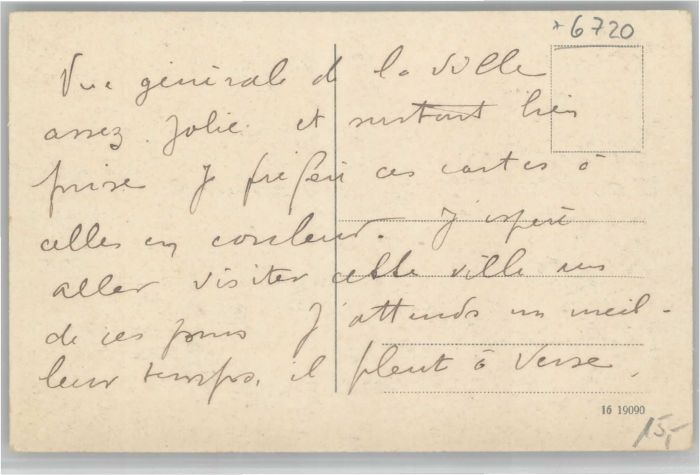 * 6720
Vue générale de la ville
assez jolie et surtout bien
prise Je préfère ces cartes à
celles en couleur. J'espère
aller visiter cette ville un
de ces jours J'attends un meil-
leur temps, il pleut à verse.
16 19090
15,-